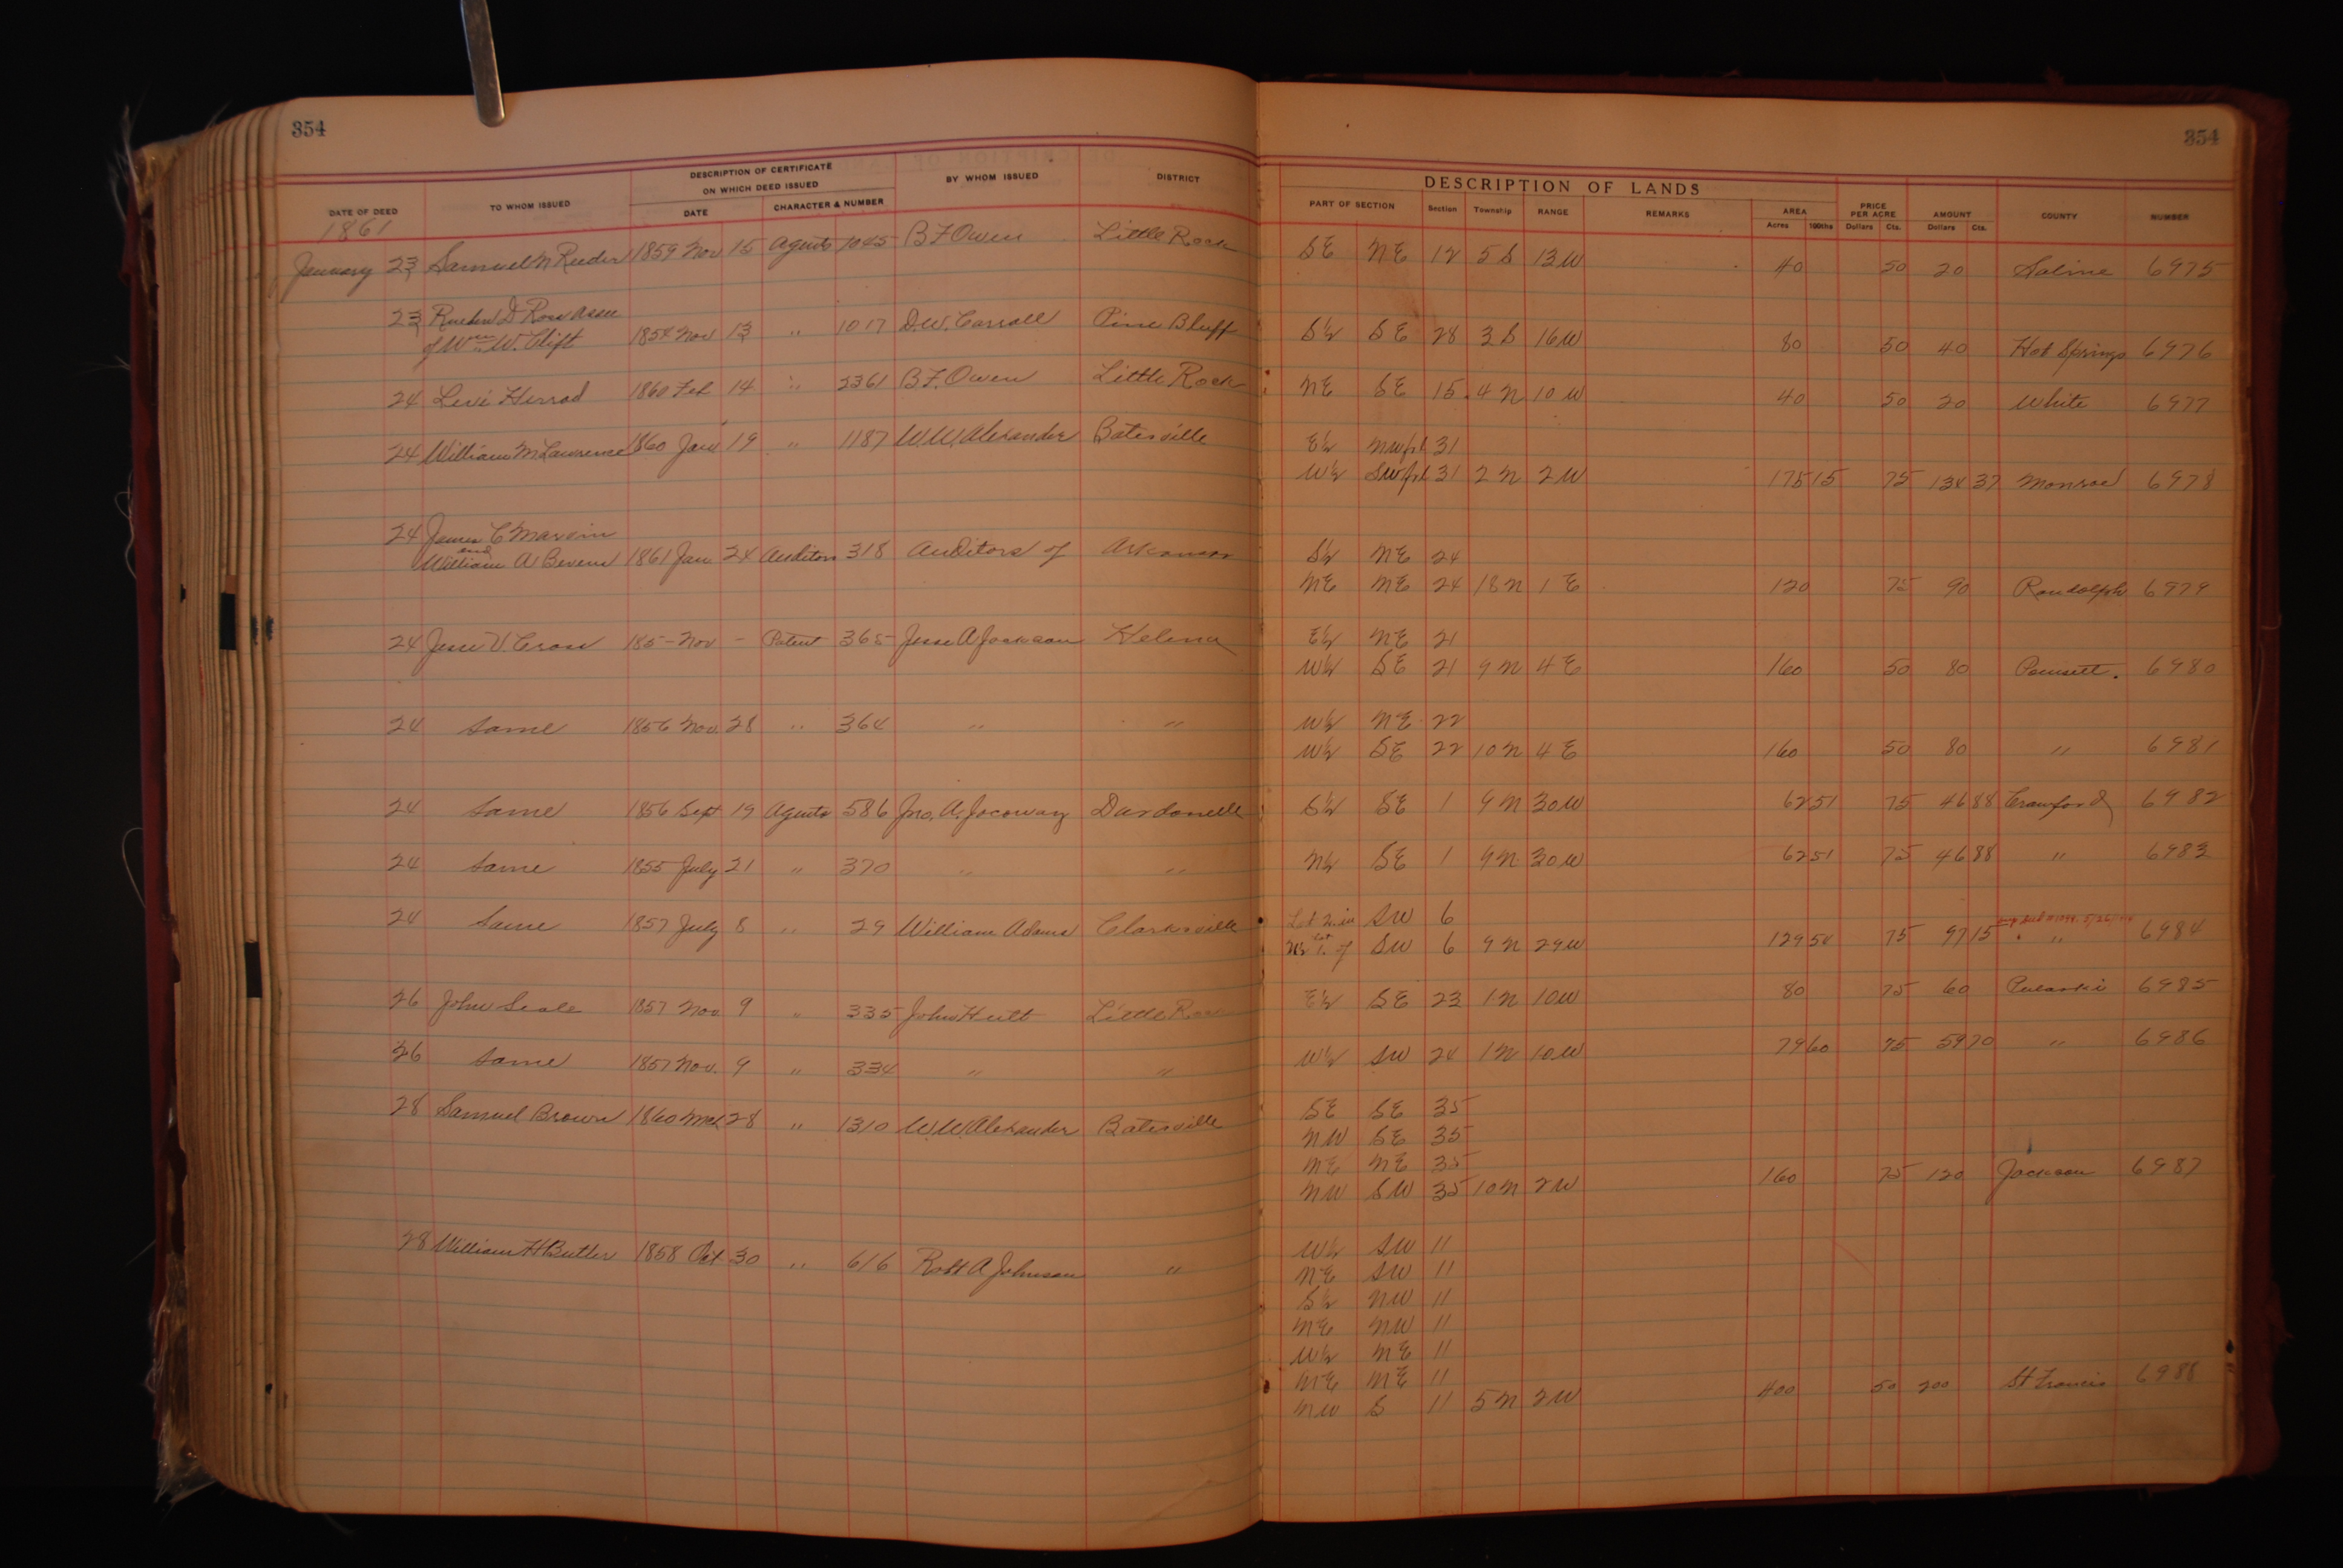 354
354
DESCRIPTION OF CERTIFICATE
ON WHICH DEED ISSUED
BY WHOM ISSUED
DISTRICT
DESCRIPTION OF LANDS
DATE OF DEED
TO WHOM ISSUED
DATE
CHARACTER & NUMBER
PART OF SECTION
Section
Township
RANGE
REMARKS
AREA
Acres 100ths
PRICE PER ACRE
Dollars Cts.
AMOUNT
Dollars Cts.
COUNTY
NUMBER
1861
January 23 Samuel N Reeder 1859 Nov 15 Agents 1045 B F Owen Little Rock SE NE 12 5 S 13 W 40 50 20 Saline 6975
23 Reuben D Ross Assee
of Wm W. Clift 1854 Nov 13 " 1017 D.W. Carroll Pine Bluff S½ SE 28 3 S 16 W 80 50 40 Hot Springs 6976
24 Levi Herrod 1860 Feb 14 " 2361 B.F. Owen Little Rock NE SE 15 4 N 10 W 40 50 20 White 6977
24 William M Lawrence 1860 Jan 19 " 1187 W.W. Alexander Batesville E½ NW frl 31
W½ SW frl 31 2 N 2 W 175 15 75 134 37 Monroe 6978
24 James C Marvin
and
William A Bevens 1861 Jan 24 Auditors 318 Auditors of Arkansas S½ NE 24
NE NE 24 18 N 1 E 120 75 90 Randolph 6979
24 Jesse V. Cross 185- Nov - Patent 365 Jesse A Jackson Helena E½ NE 21
W½ SE 21 9 N 4 E 160 50 80 Poinsett. 6980
24 Same 1856 Nov. 28 " 364 " " W½ NE 22
W½ SE 22 10 N 4 E 160 50 80 " 6981
24 Same 1856 Sept 19 Agents 586 Jno. A. Jacoway Dardanelle S½ SE 1 9 N 30 W 62 51 75 46 88 Crawford 6982
24 Same 1855 July 21 " 370 " " N½ SE 1 9 N. 30 W 62 51 75 46 88 " 6983
24 Same 1857 July 8 " 29 William Adams Clarksville Lot 2 in SW 6
N½ Lot 1. of SW 6 9 N 29 W 129 54 75 97 15 " 6984
26 John Seale 1857 Nov. 9 " 335 John Hutt Little Rock E½ SE 23 1 N 10 W 80 75 60 Pulaski 6985
26 Same 1857 Nov. 9 " 334 " " W½ SW 24 1 N 10 W 79 60 75 59 70 " 6986
28 Samuel Brown 1860 Mch 28 " 1310 W.W. Alexander Batesville SE SE 35
NW SE 35
NE NE 35
NW SW 35 10 N 2 W 160 75 120 Jackson 6987
28 William H Butler 1858 Oct 30 " 616 Robt A Johnson " W½ SW 11
NE SW 11
S½ NW 11
NE NW 11
W½ NE 11
NE NE 11
NW S 11 5 N 2 W 400 50 200 St Francis 6988